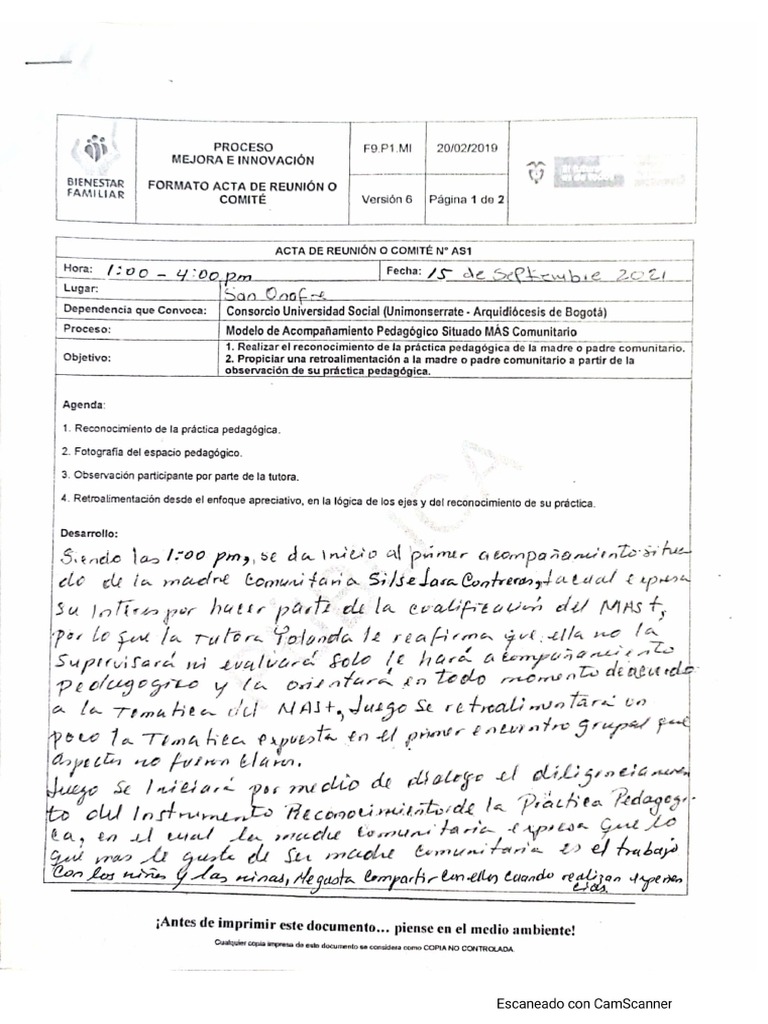 BIENESTAR
FAMILIAR
PROCESO
MEJORA E INNOVACIÓN
FORMATO ACTA DE REUNIÓN O
COMITÉ
F9.P1.MI
20/02/2019
Versión 6
Página 1 de 2
ACTA DE REUNIÓN O COMITÉ N° AS1
Hora: 1:00 - 4:00 pm
Fecha: 15 de Septiembre 2021
Lugar: San Onofre
Dependencia que Convoca: Consorcio Universidad Social (Unimonserrate - Arquidiócesis de Bogotá)
Proceso: Modelo de Acompañamiento Pedagógico Situado MÁS Comunitario
Objetivo: 1. Realizar el reconocimiento de la práctica pedagógica de la madre o padre comunitario.
2. Propiciar una retroalimentación a la madre o padre comunitario a partir de la
observación de su práctica pedagógica.
Agenda:
1. Reconocimiento de la práctica pedagógica.
2. Fotografía del espacio pedagógico.
3. Observación participante por parte de la tutora.
4. Retroalimentación desde el enfoque apreciativo, en la lógica de los ejes y del reconocimiento de su práctica.
Desarrollo:
Siendo las 1:00 pm, se da inicio al primer acompañamiento situa
do de la madre Comunitaria Silse Lara Contreras, la cual expresa
su Interes por hacer parte de la cualificación del MAS+,
por lo que la Tutora Yolanda le reafirma que, ella no la
Supervisará ni evaluará Solo le hará acompañamiento
Pedagogico y la orientará en todo momento de acuerdo
a la Tematica del MAS+, luego se retroalimentará un
poco la Tematica expuesta en el primer encuentro grupal que
aspectos no fueron claros.
Luego se Iniciará por medio de dialogo el diligenciamien
to del Instrumento Reconocimiento de la Práctica Pedagogi-
ca, en el cual la madre Comunitaria expresa que lo
que mas le gusta de ser madre Comunitaria es el trabajo
Con los niños y las niñas, Me gusta Compartir con ellos cuando realizan experien
cias.
¡Antes de imprimir este documento... piense en el medio ambiente!
Cualquier copia impresa de este documento se considera como COPIA NO CONTROLADA.
Escaneado con CamScanner